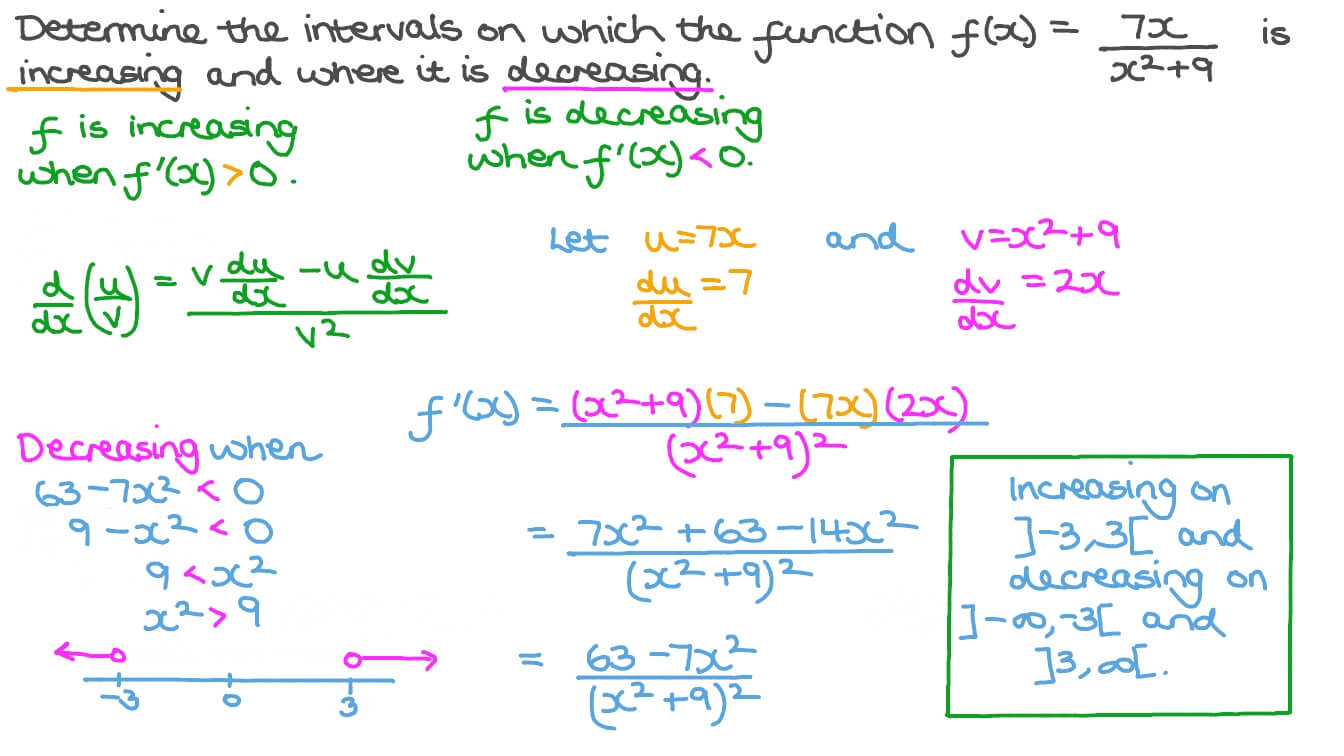 Determine the intervals on which the function f(x) = 7x/(x²+9) is
increasing and where it is decreasing.
f is increasing
when f'(x) > 0.
f is decreasing
when f'(x) < 0.
d/dx (u/v) = (v du/dx − u dv/dx)/v²
Let u=7x and v=x²+9
du/dx = 7
dv/dx = 2x
f'(x) = ((x²+9)(7) − (7x)(2x))/(x²+9)²
= (7x² + 63 − 14x²)/(x²+9)²
= (63 − 7x²)/(x²+9)²
Decreasing when
63 − 7x² < 0
9 − x² < 0
9 < x²
x² > 9
−3 0 3
Increasing on
]−3,3[ and
decreasing on
]−∞,−3[ and
]3,∞[.